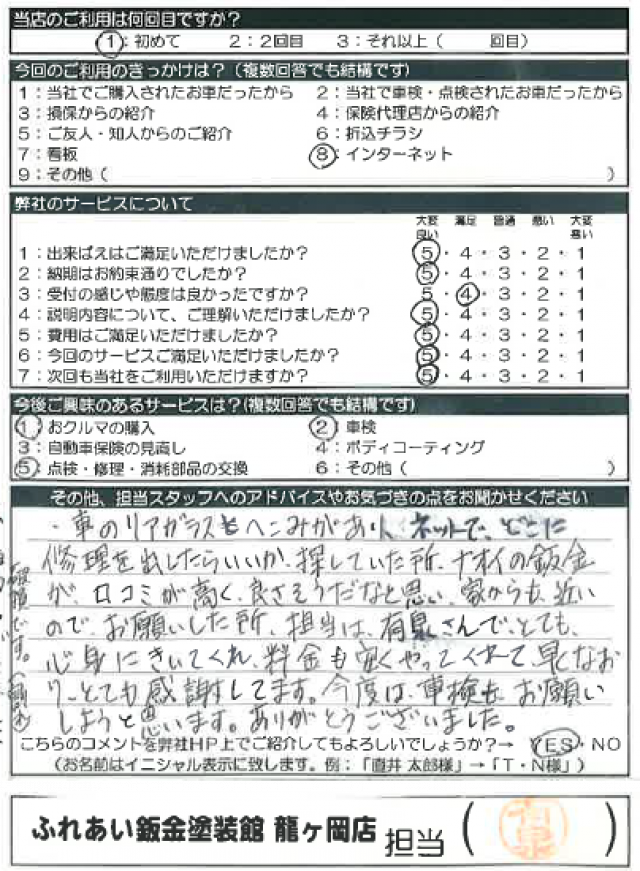 当店のご利用は何回目ですか？
1：初めて　2：2回目　3：それ以上（　　回目）
今回のご利用のきっかけは？（複数回答でも結構です）
1：当社でご購入されたお車だったから　2：当社で車検・点検されたお車だったから
3：損保からの紹介　4：保険代理店からの紹介
5：ご友人・知人からのご紹介　6：折込チラシ
7：看板　8：インターネット
9：その他（　　）
弊社のサービスについて
大変良い　満足　普通　悪い　大変悪い
1：出来ばえはご満足いただけましたか？　5・4・3・2・1
2：納期はお約束通りでしたか？　5・4・3・2・1
3：受付の感じや態度は良かったですか？　5・4・3・2・1
4：説明内容について、ご理解いただけましたか？　5・4・3・2・1
5：費用はご満足いただけましたか？　5・4・3・2・1
6：今回のサービスご満足いただけましたか？　5・4・3・2・1
7：次回も当社をご利用いただけますか？　5・4・3・2・1
今後ご興味のあるサービスは？(複数回答でも結構です)
1：おクルマの購入　2：車検
3：自動車保険の見直し　4：ボディコーティング
5：点検・修理・消耗部品の交換　6：その他（　　）
その他、担当スタッフへのアドバイスやお気づきの点をお聞かせください
・車のリアガラスもへこみがあり、ネットで、どこに
修理を出したらいいか、探していた所、ナオイの鈑金
が、口コミが高く、良さそうだなと思い、家からも、近い
ので、お願いした所、担当は、有泉さんで、とても、
心身にきいてくれ、料金も安くやってくれて、早くなお
り、とても感謝してます。今度は、車検も、お願い
しようと思います。ありがとうございました。
こちらのコメントを弊社HP上でご紹介してもよろしいでしょうか？→　YES・NO
（お名前はイニシャル表示に致します。例：「直井 太郎様」→「T・N様」）
ふれあい鈑金塗装館 龍ヶ岡店　担当（有泉）